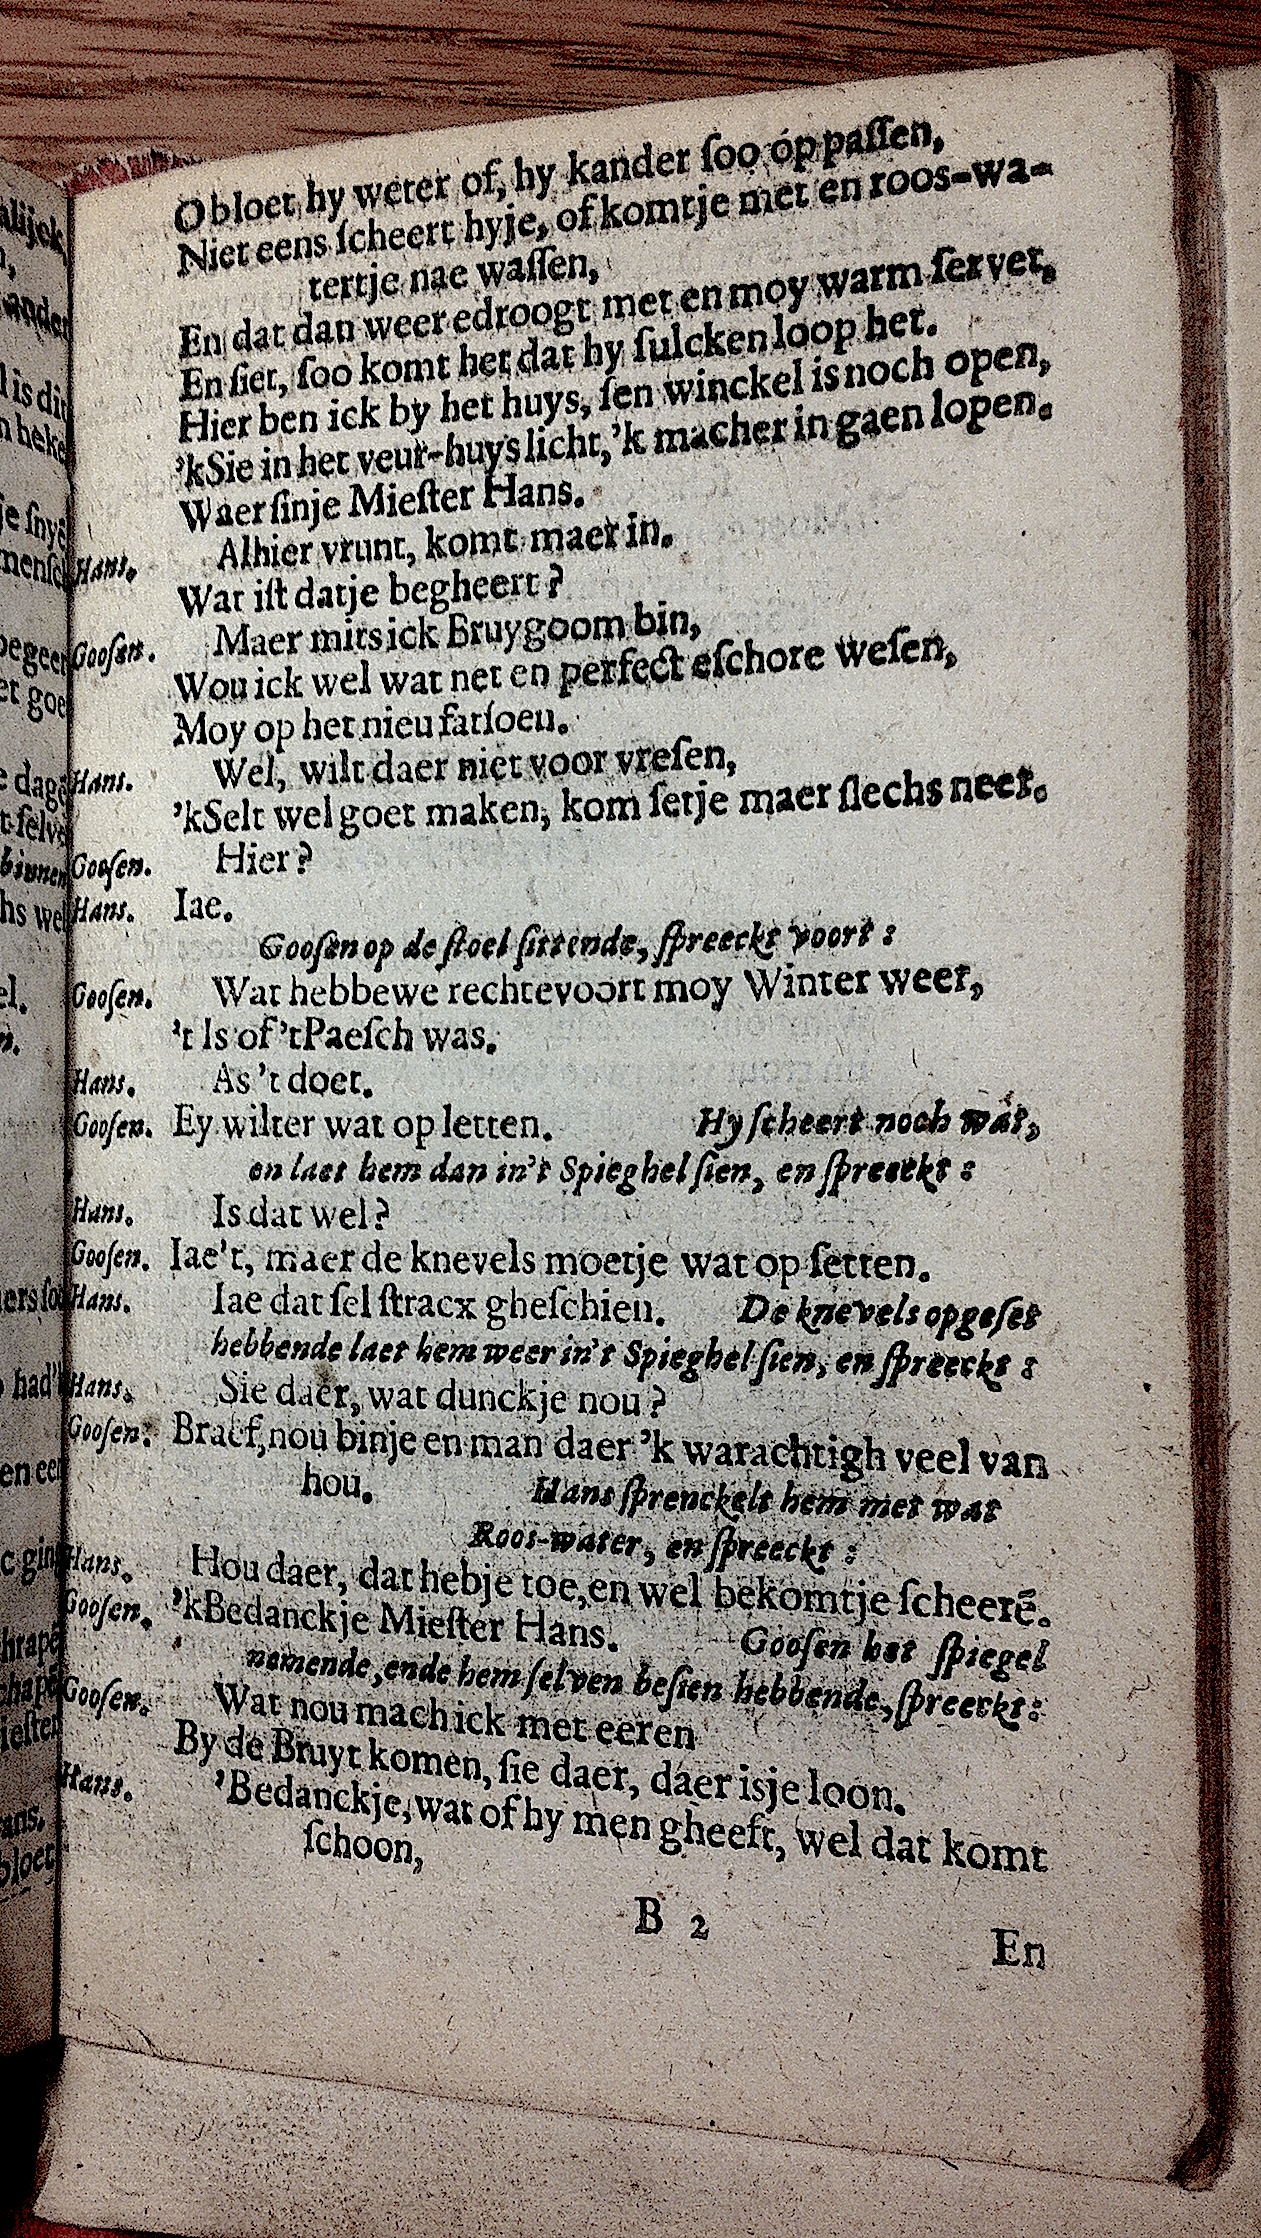 O bloet hy weter of, hy kander ſoo op paſſen,
Niet eens ſcheert hyje, of komtje met en roos-wa-
tertje nae waſſen,
En dat dan weer edroogt met en moy warm ſervet,
En ſiet, ſoo komt het dat hy ſulcken loop het.
Hier ben ick by het huys, ſen winckel is noch open,
'kSie in het veur-huys licht, 'k macher in gaen lopen.
Waer ſinje Mieſter Hans.
Hans. Alhier vrunt, komt maer in.
Wat iſt datje begheert?
Gooſen. Maer mits ick Bruygoom bin,
Wou ick wel wat net en perfect eſchore weſen,
Moy op het nieu fatſoen.
Hans. Wel, wilt daer niet voor vreſen,
'kSelt wel goet maken, kom ſetje maer ſlechs neer.
Gooſen. Hier?
Hans. Iae.
Gooſen op de ſtoel ſittende, ſpreeckt voort:
Gooſen. Wat hebbewe rechtevoort moy Winter weer,
't Is of 'tPaeſch was.
Hans. As 't doet.
Gooſen. Ey wilter wat op letten. Hy ſcheert noch wat,
en laet hem dan in't Spieghel ſien, en ſpreeckt:
Hans. Is dat wel?
Gooſen. Iae't, maer de knevels moetje wat op ſetten.
Hans. Iae dat ſel ſtracx gheſchien. De knevels opgeſet
hebbende laet hem weer in't Spieghel ſien, en ſpreeckt:
Hans. Sie daer, wat dunckje nou?
Gooſen. Braef, nou binje en man daer 'k warachtigh veel van
hou. Hans ſprenckelt hem met wat
Roos-water, en ſpreeckt:
Hans. Hou daer, dat hebje toe, en wel bekomtje ſcheerē.
Gooſen. 'kBedanckje Mieſter Hans. Gooſen het ſpiegel
nemende, ende hem ſelven beſien hebbende, ſpreeckt:
Gooſen. Wat nou mach ick met eeren
By de Bruyt komen, ſie daer, daer isje loon.
Hans. 'Bedanckje, wat of hy men gheeft, wel dat komt
ſchoon,
B 2
En